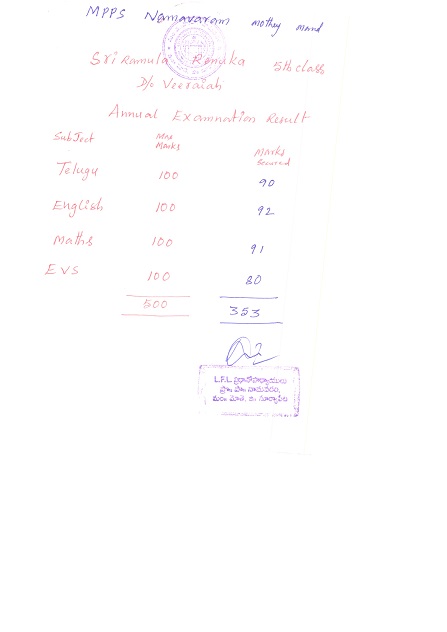 MPPS Namavaram mothey mand
Sri Ramula Renuka 5th class
D/o Veeraiah
Annual Examnation Result
Subject Max Marks Marks Secured
Telugu 100 90
English 100 92
Maths 100 91
EVS 100 80
500 353
L.F.L. ప్రధానోపాధ్యాయులు
మం. మోతె, జి. సూర్యాపేట